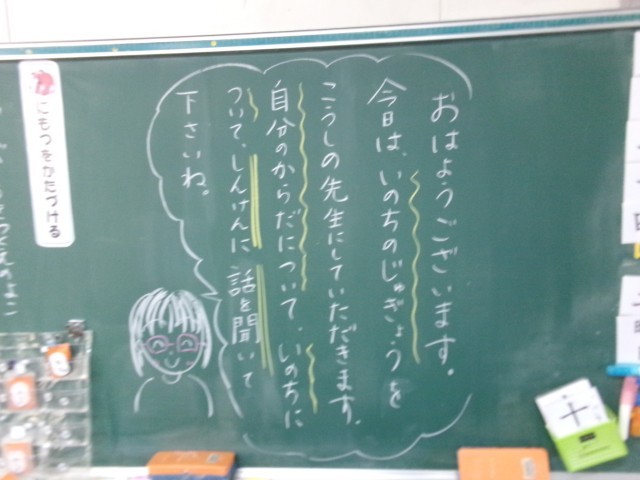 おはようございます。
今日は、いのちのじゅぎょうを
こうしの先生にしていただきます。
自分のからだについて、いのちに
ついて、しんけんに話を聞いて
下さいね。
にもつをかたづける